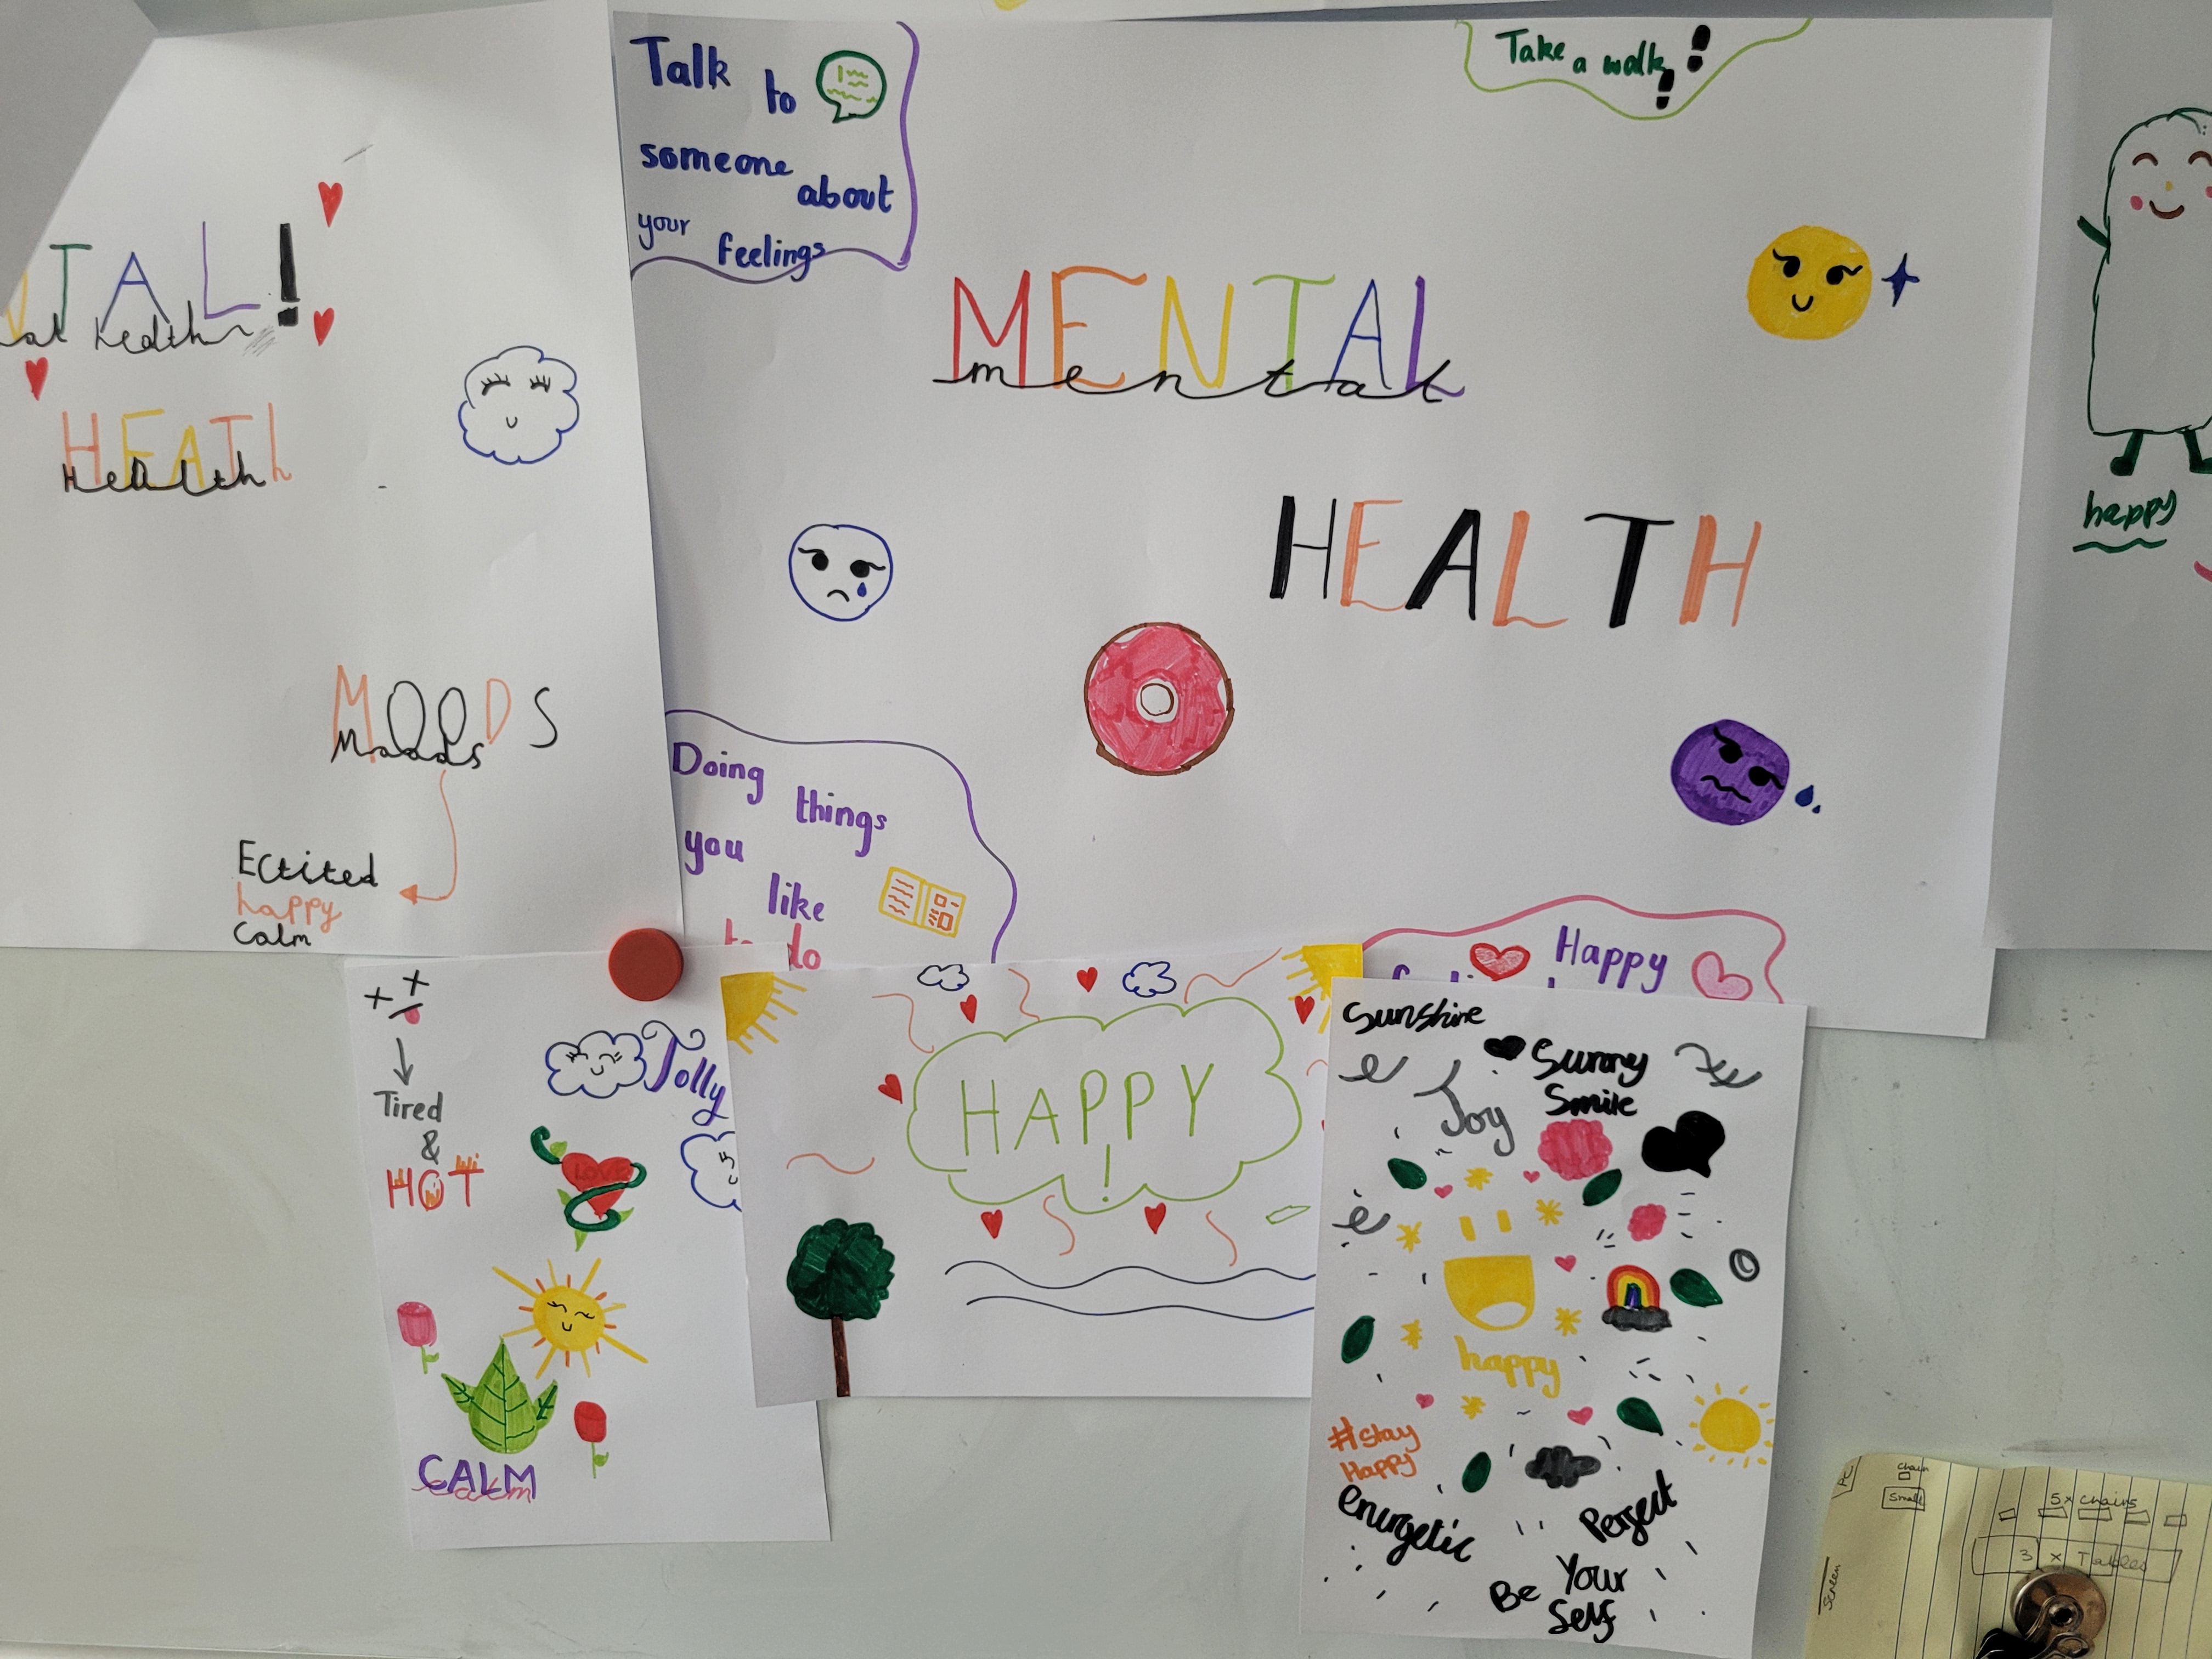 TAL!
health
HEATh
Health
MOODS
Moods
Ectited
happy
Calm
Talk to
someone about
your feelings
Take a walk
MENTAL
mental
HEALTH
Doing things
you like
to do
Happy
happy
Tired
&
HOT
Jolly
LOVE
CALM
calm
HAPPY
!
Sunshine
Sunny
Smile
Joy
happy
#stay
Happy
energetic
Perfect
Be Your
Self
PC
Chair
Small
5x chairs
3 x Tables
Screen